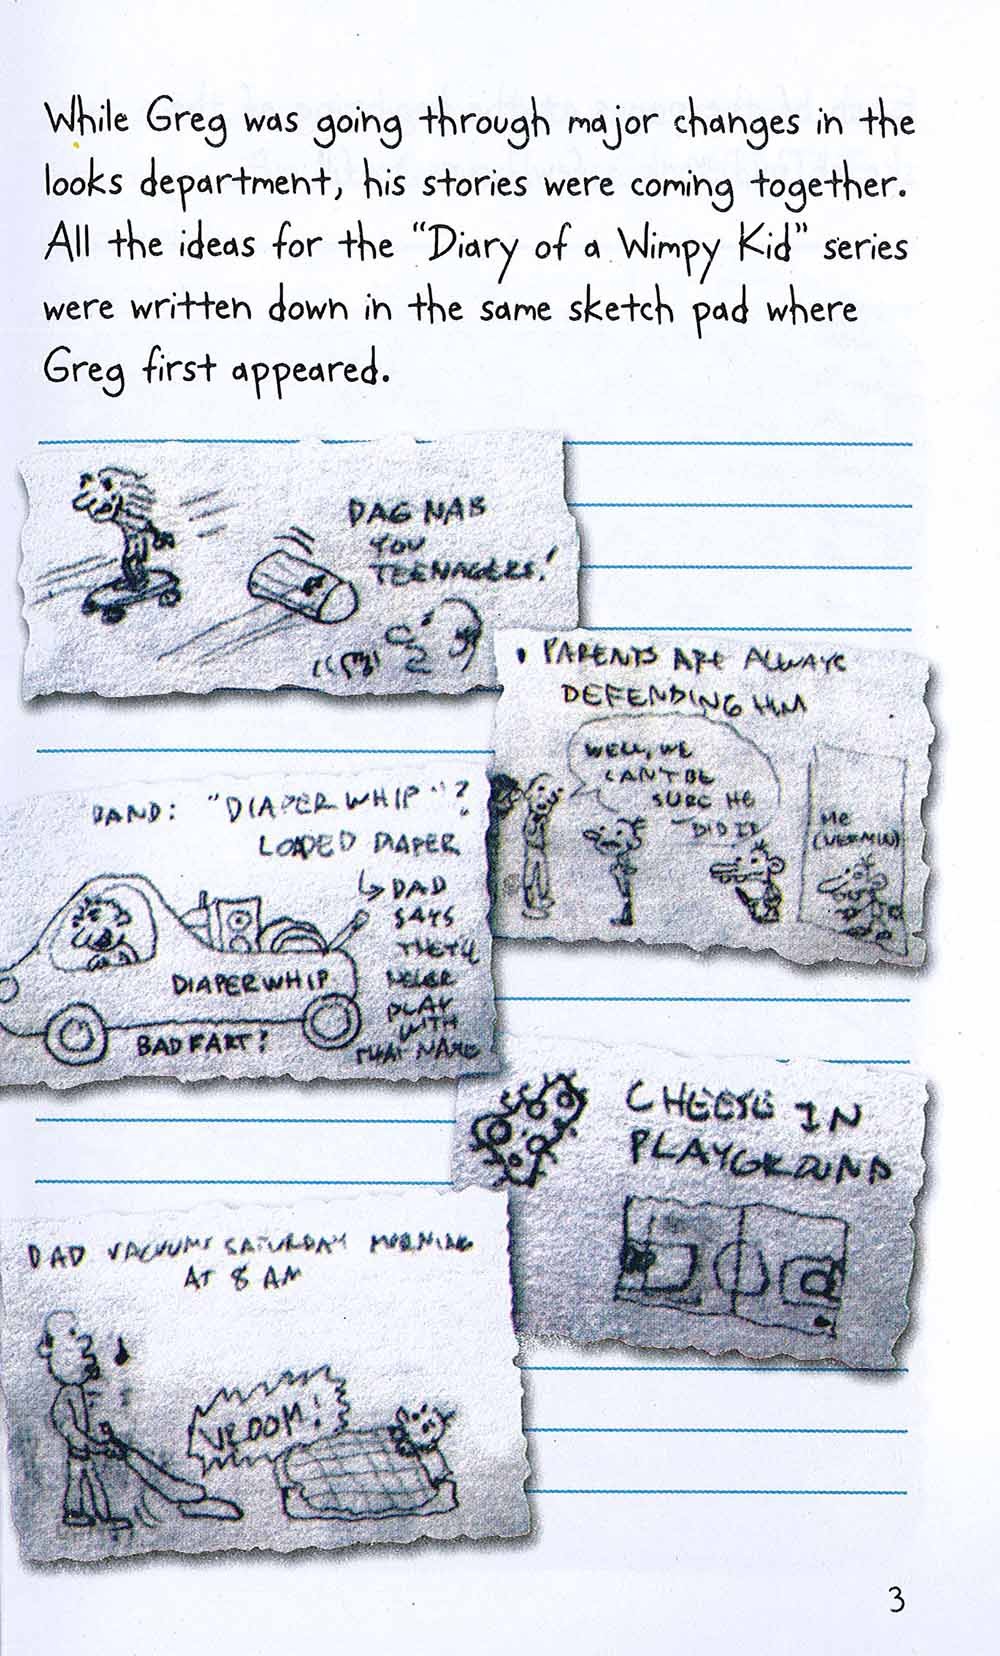 While Greg was going through major changes in the
looks department, his stories were coming together.
All the ideas for the "Diary of a Wimpy Kid" series
were written down in the same sketch pad where
Greg first appeared.
DAG NAB
YOU
TEENAGERS!
• PARENTS ARE ALWAYS
DEFENDING HIM
WELL, WE
CAN'T BE
SURE HE
DID IT
ME
(VERMIN)
BAND: "DIAPER WHIP"?
LOADED DIAPER
DAD
SAYS
THEY'LL
NEVER
PLAY
WITH
THAT NAME
DIAPERWHIP
BAD FART?
CHEESE IN
PLAYGROUND
DAD VACUUMS SATURDAY MORNING
AT 8 AM
VROOM!
3